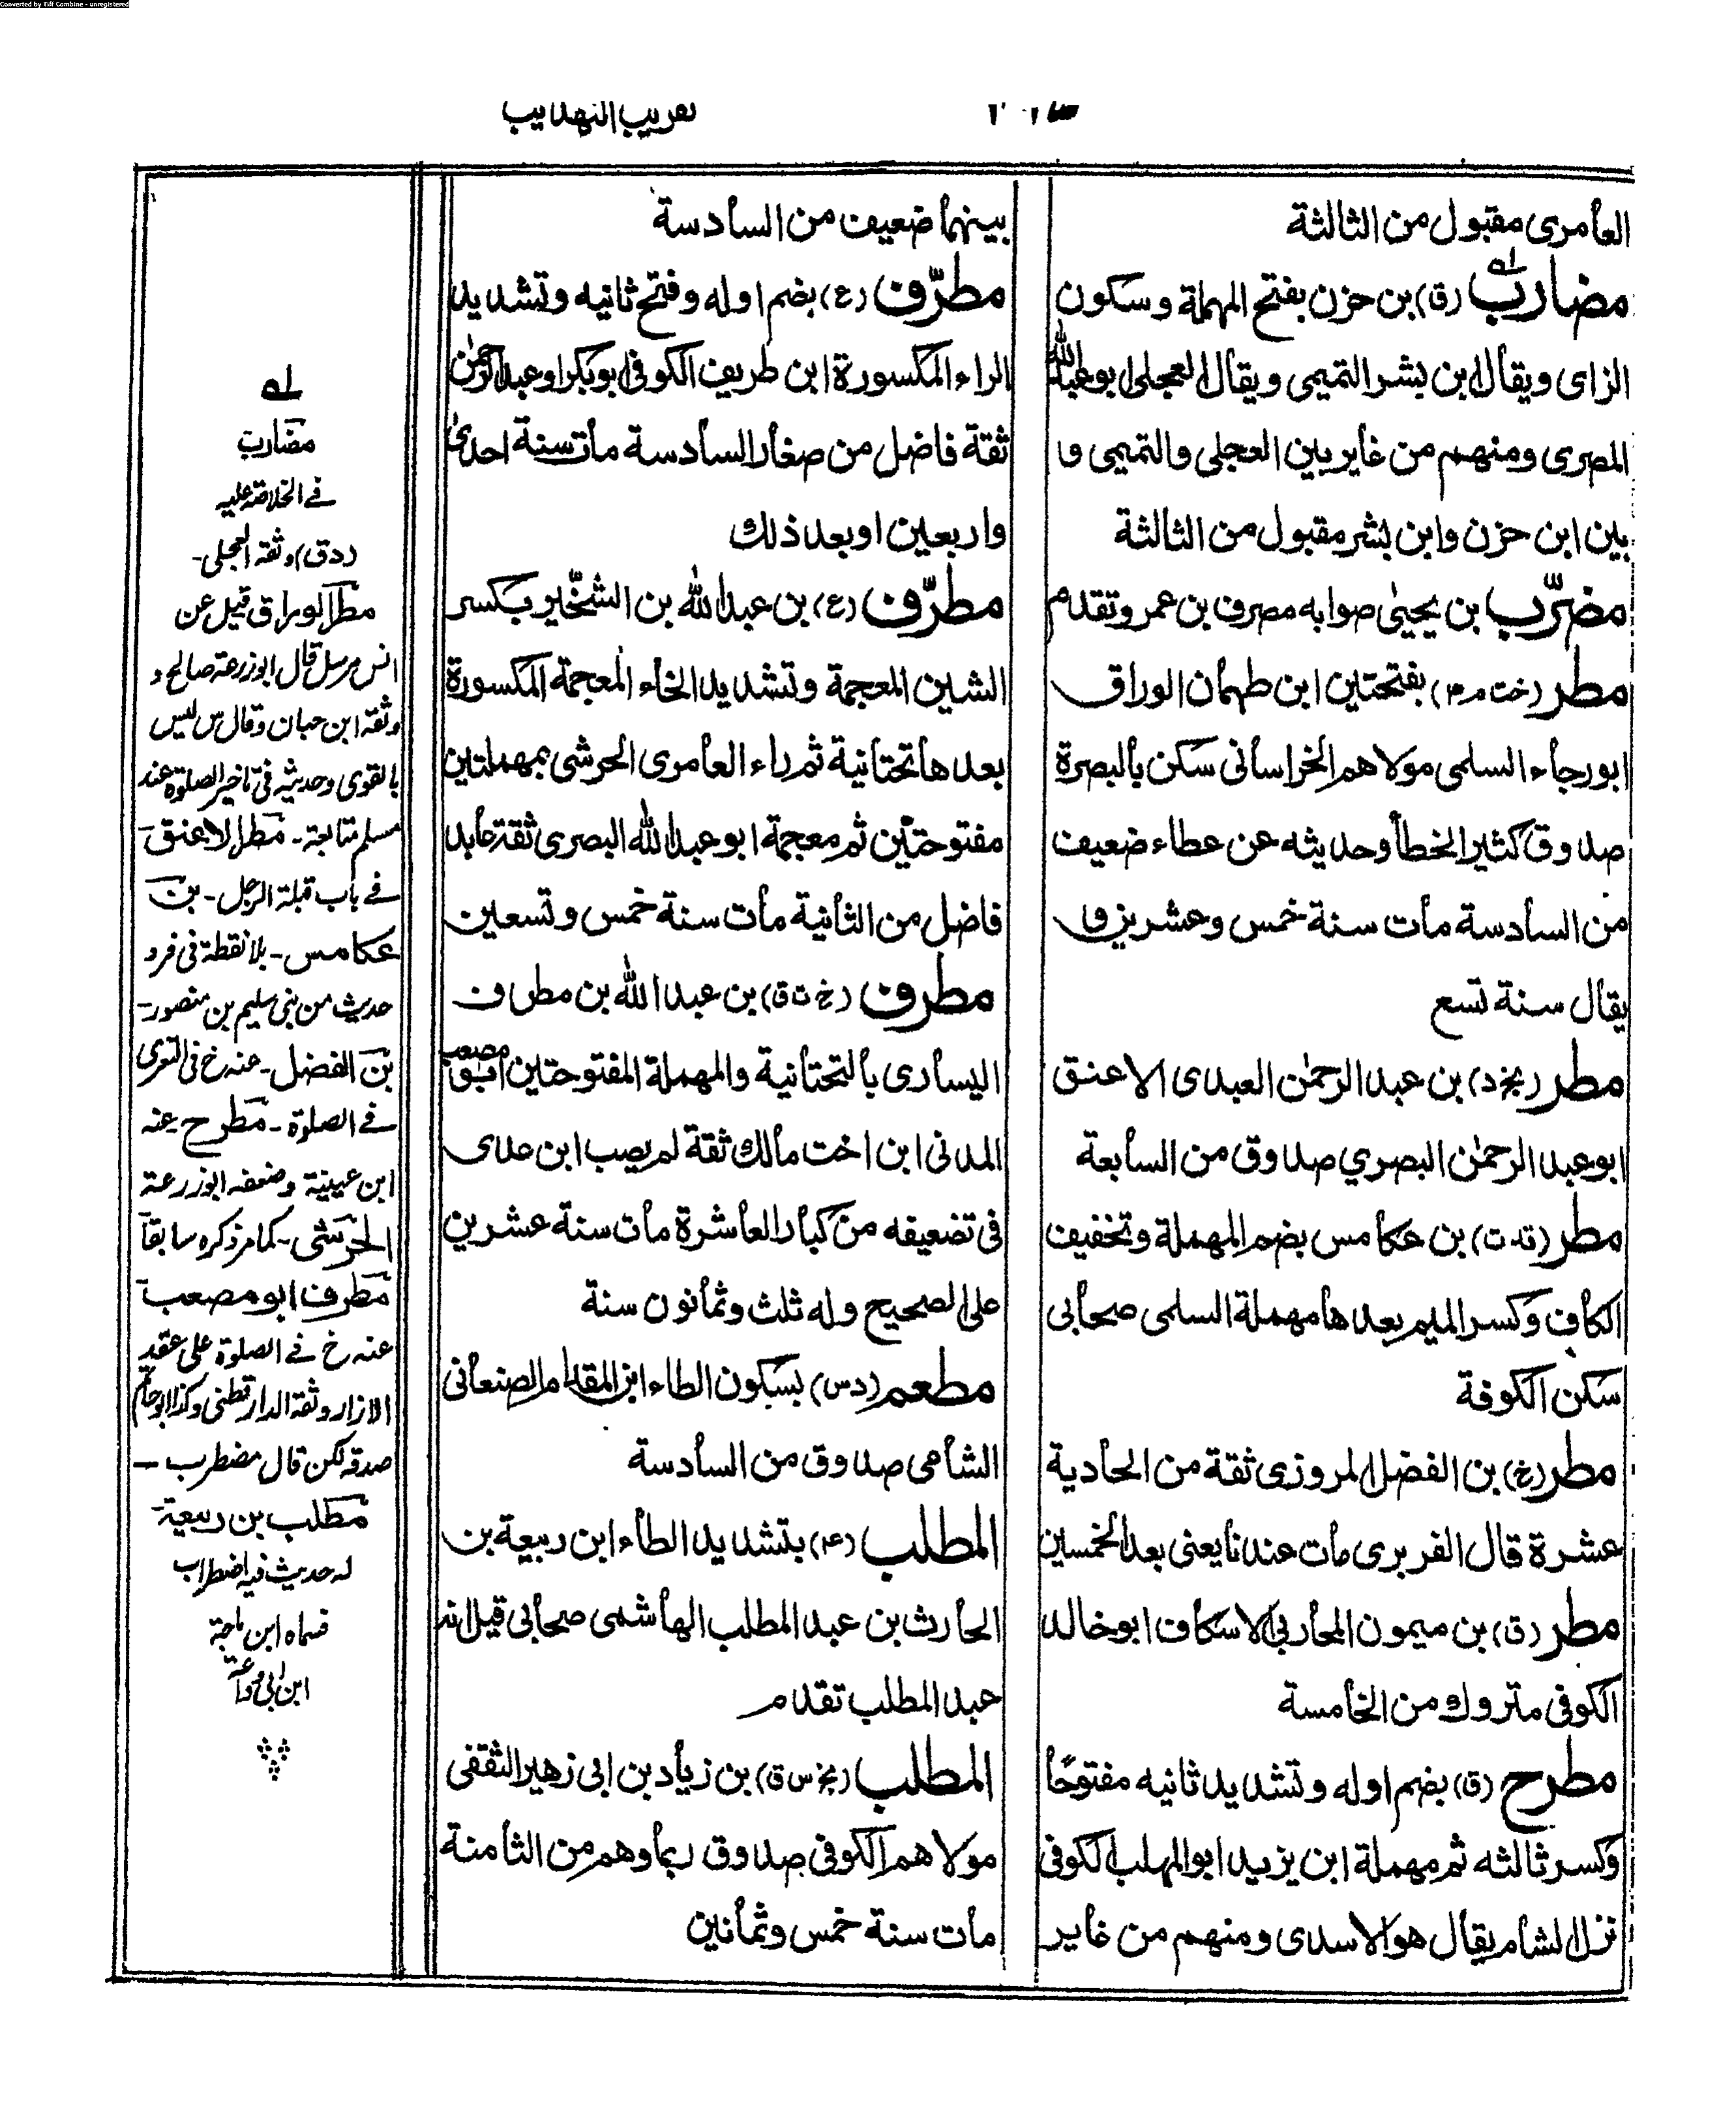 Converted by Tiff Combine - unregistered
تقريب التهذيب
العامرى مقبول من الثالثة
مضارب (ق) بن حزن بفتح المهملة وسكون
الزاى ويقال ابن بشر التميمى ويقال العجلى ابو عبد الله
المصرى ومنهم من غاير بين العجلى والتميمى و
بين ابن حزن وابن بشر مقبول من الثالثة
مضرّب بن يحيىٰ صوابه مصرف بن عمرو تقدم
مطر (خت م ۴) بفتحتين ابن طهمان الوراق
ابو رجاء السلمى مولاهم الخراسانى سكن بالبصرة
صدوق كثير الخطأ وحديثه عن عطاء ضعيف
من السادسة مات سنة خمس وعشرين و
يقال سنة تسع
مطر (بخ د) بن عبد الرحمٰن العبدى الاعنق
ابو عبد الرحمٰن البصري صدوق من السابعة
مطر (قد ت) بن عكامس بضم المهملة وتخفيف
الكاف وكسر الميم بعدها مهملة السلمى صحابى
سكن الكوفة
مطر (خ) بن الفضل المروزى ثقة من الحادية
عشرة قال الفربرى مات عندنا يعنى بعد الخمسين
مطر (ق) بن ميمون المحاربى الاسكاف ابو خالد
الكوفى متروك من الخامسة
مطرح (ق) بضم اوله وتشديد ثانيه مفتوحًا
وكسر ثالثه ثم مهملة ابن يزيد ابو المهلب الكوفى
نزل الشام يقال هو الاسدى ومنهم من غاير
بينهما ضعيف من السادسة
مطرّف (ع) بضم اوله وفتح ثانيه وتشديد
الراء المكسورة ابن طريف الكوفى ابو بكر او عبد الرحمٰن
ثقة فاضل من صغار السادسة مات سنة احدىٰ
واربعين او بعد ذلك
مطرّف (ع) بن عبد الله بن الشخّير بكسر
الشين المعجمة وتشديد الخاء المعجمة المكسورة
بعدها تحتانية ثم راء العامرى الحرشى بمهملتين
مفتوحتين ثم معجمة ابو عبد الله البصرى ثقة عابد
فاضل من الثانية مات سنة خمس وتسعين
مطرف (خ ت ق) بن عبد الله بن مطرف
اليسارى بالتحتانية والمهملة المفتوحتين ابو مصعب
المدنى ابن اخت مالك ثقة لم يصب ابن عدى
فى تضعيفه من كبار العاشرة مات سنة عشرين
على الصحيح وله ثلث وثمانون سنة
مطعم (د س) بسكون الطاء ابن المقدام الصنعانى
الشامى صدوق من السادسة
المطلب (م۴) بتشديد الطاء ابن ربيعة بن
الحارث بن عبد المطلب الهاشمى صحابى قيل انه
عبد المطلب تقدم
المطلب (بخ س ق) بن زياد بن ابى زهير الثقفى
مولاهم الكوفى صدوق ربما وهم من الثامنة
مات سنة خمس وثمانين
له
مضارب
فے الخلاصة عليه
(د ق) وثقه العجلى -
مطر الوراق قيل عن
انس مرسل قال ابو زرعة صالح و
وثقه ابن حبان وقال س ليس
بالقوى وحديثه فى تاخير الصلوة عند
مسلم متابعة - مطر الاعنق
فے باب قبلة الرجل - بن
عكامس - بلا نقطة فى فرد
حديث من بنى سليم بن منصور -
بن الفضل - عنه خ فى
فے الصلوة - مطرح عنه
ابن عيينة وضعفه ابو زرعة
الحرشى - كما مر ذكره سابقا
مطرف ابو مصعب
عنه خ فے الصلوة على عقد
الازار وثقه الدارقطنى وكذا ابو حاتم
صدقه لكن قال مضطرب -
مطلب بن ربيعة -
له حديث فيه اضطراب
فسماه ابن ماجة
ابن ابى وداعة